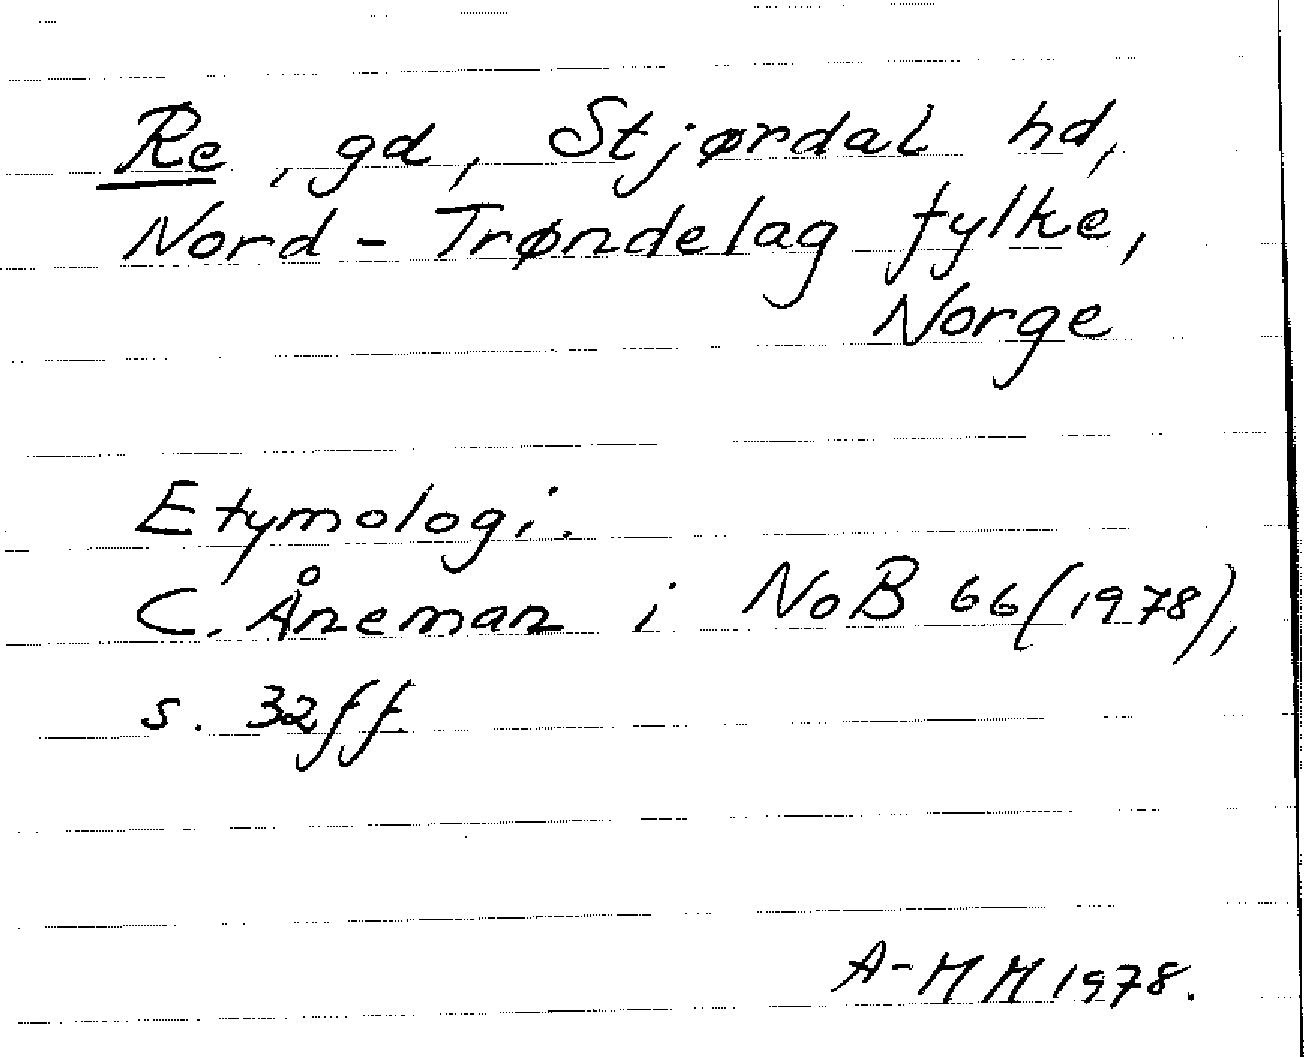 Re, gd, Stjørdal hd,
Nord-Trøndelag fylke,
Norge
Etymologi.
C. Åneman i NoB 66(1978),
s. 32ff.
A-MM 1978.